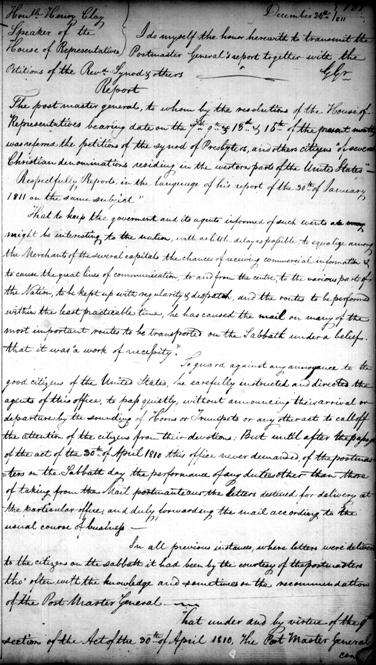 Honble Henry Clay
Speaker of the
House of Representatives
December 30th 1811
I do myself the honor herewith to transmit the
Postmaster General's report together with the
Petitions of the Revd. Synod & others
GGr
Report
The post master general, to whom by the resolutions of the House of
Representatives bearing date on the & 15th & 16th of the present month
was referd the petitions of the synod of Presbyters, and others citizens "of several
Christian denominations residing in the western parts of the United States"—
Respectfully Reports in the language of his report of the 30th of January
1811 on the same subject"
"That to keep the government and its agents informed of such events as
might be interesting to the nation, with as little delay as possible to equalize among
the Merchants of the several capitals the chances of receiving commercial information &
to cause the great lines of communication, to and from the centre, to the various parts of
the Nation, to be kept up with regularity & despatch, and the routes to be performed
within the least practicable time, he has caused the mail on many of the
most important routes to be transported on the Sabbath under a belief
that it was "a work of necessity"
To guard against any annoyance to the
good citizens of the United States, he carefully instructed and directed the
agents of this office, to pass quietly, without announcing their arrival or
departure by the sounding of Horns or Trumpets or any other act to call off
the attention of the citizens from their devotions: But until after the passage
of the act of the 30th of April 1810 this office never demanded of the postmas-
ters on the Sabbath day the performance of any duties other than those
of taking from the Mail the letters destined for delivery at
the particular office, and duly forwarding the mail according to the
usual course of business —
In all previous instances, where letters were delivered
to the citizens on the sabbath it had been by the courtesy of the postmasters
tho' often with the knowledge and sometimes on the recommendation
of the Post Master General —
That under and by virtue of the 9th
section of the Act of the 30th of April 1810, The Post Master General